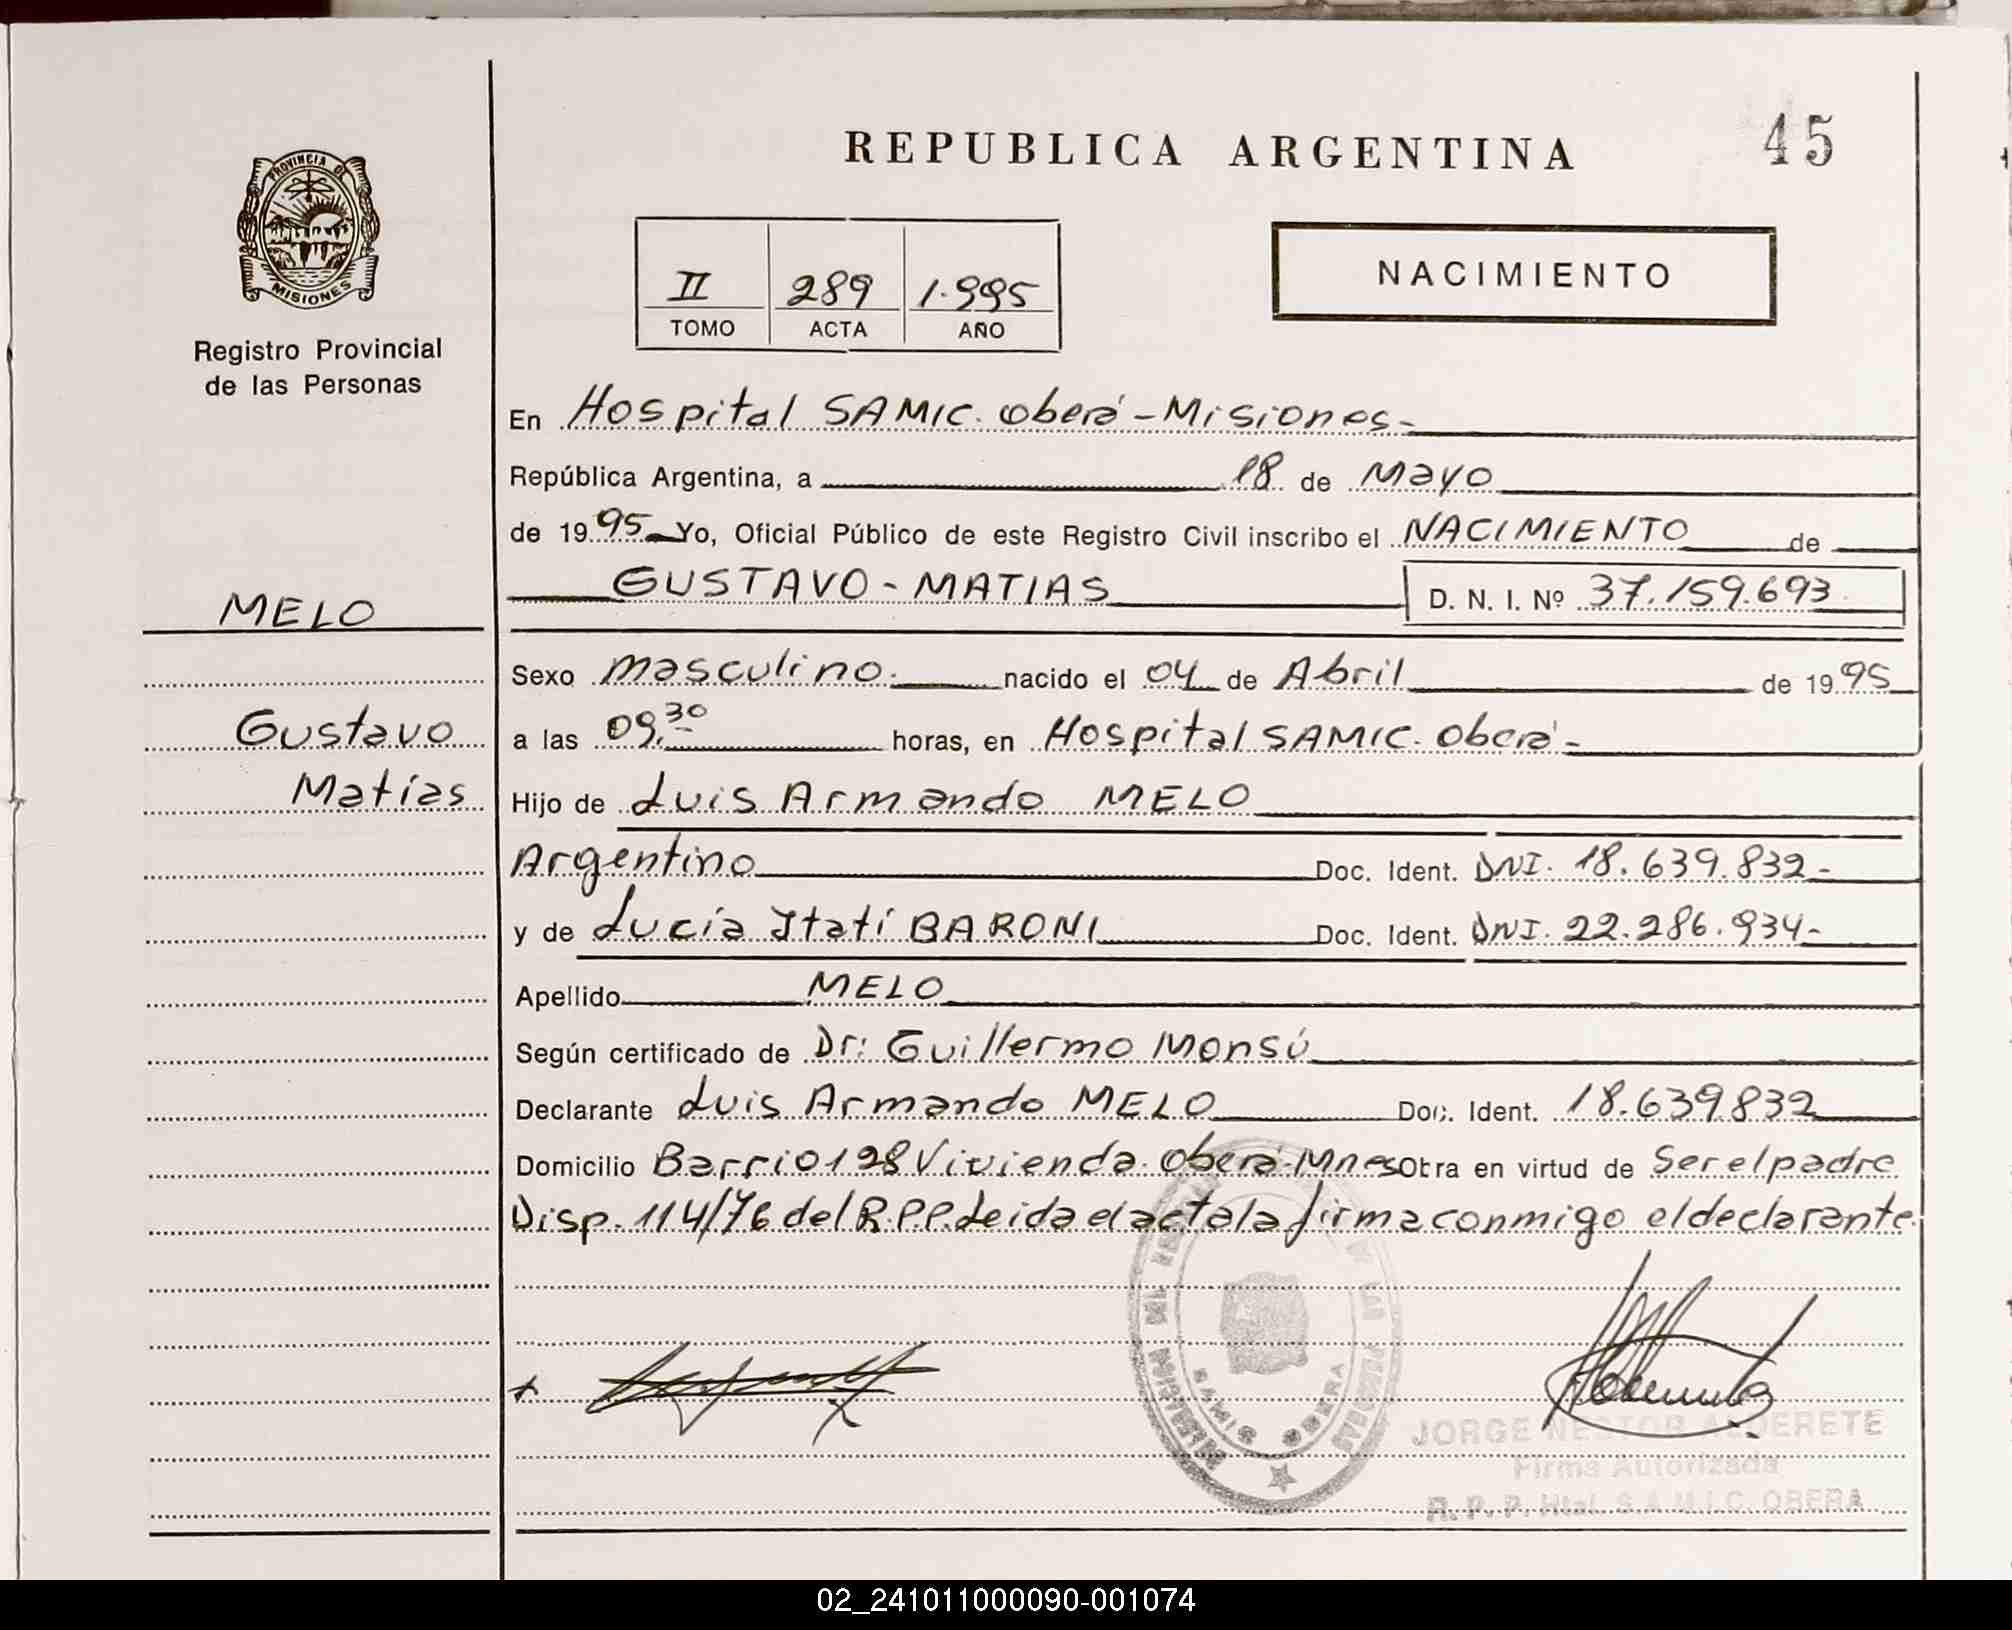 REPUBLICA ARGENTINA
45
PROVINCIA DE
MISIONES
Registro Provincial
de las Personas
II 289 1.995
TOMO ACTA AÑO
NACIMIENTO
En Hospital SAMIC. Oberá - Misiones -
República Argentina, a 18 de Mayo
de 1995 Yo, Oficial Público de este Registro Civil inscribo el NACIMIENTO de
GUSTAVO - MATIAS D. N. I. Nº 37.159.693
MELO
Sexo masculino. nacido el 04 de Abril de 1995
Gustavo
a las 09,30 horas, en Hospital SAMIC. Oberá -
Matías
Hijo de Luis Armando MELO
Argentino Doc. Ident. DNI. 18.639.832 -
y de Lucía Itatí BARONI Doc. Ident. DNI. 22.286.934 -
Apellido MELO
Según certificado de Dr: Guillermo Monsú
Declarante Luis Armando MELO Doc. Ident. 18.639832
Domicilio Barrio 128 Vivienda. Oberá-Mnes Obra en virtud de Ser el padre
Disp. 114/76 del R.P.P. Leida el acta la firma conmigo el declarante.
SAMIC OBERA
JORGE NESTOR ALDERETE
Firma Autorizada
R. P. P. Htal. S.A.M.I.C. OBERA
02_241011000090-001074